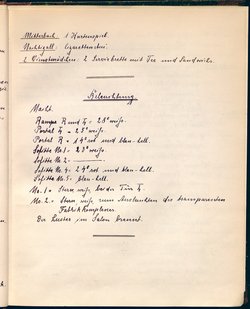 Mitterbach: 1 Kartenspiel.
Nachtigall: Cigarettenetui.
2 Dienstmädchen: 2 Servierbrette mit Tee und Sandwichs.
Beleuchtung.
Nacht.
Rampe R und L = 25° weiß.
Portal L = 25° weiß.
Portal R = 14° rot und blau-hell.
Soffitte No. 1 = 25° weiß.
Soffitte No. 2 =
Soffitte No. 4 = 24° rot und blau-hell.
Soffitte No. 5 = blau-hell.
No. 1 = Sturm weiß bei der Tür L
No. 2 = Sturm weiß zum Ausleuchten des transparenten
Fabrik Komplexes.
Der Luster im Salon brennt.